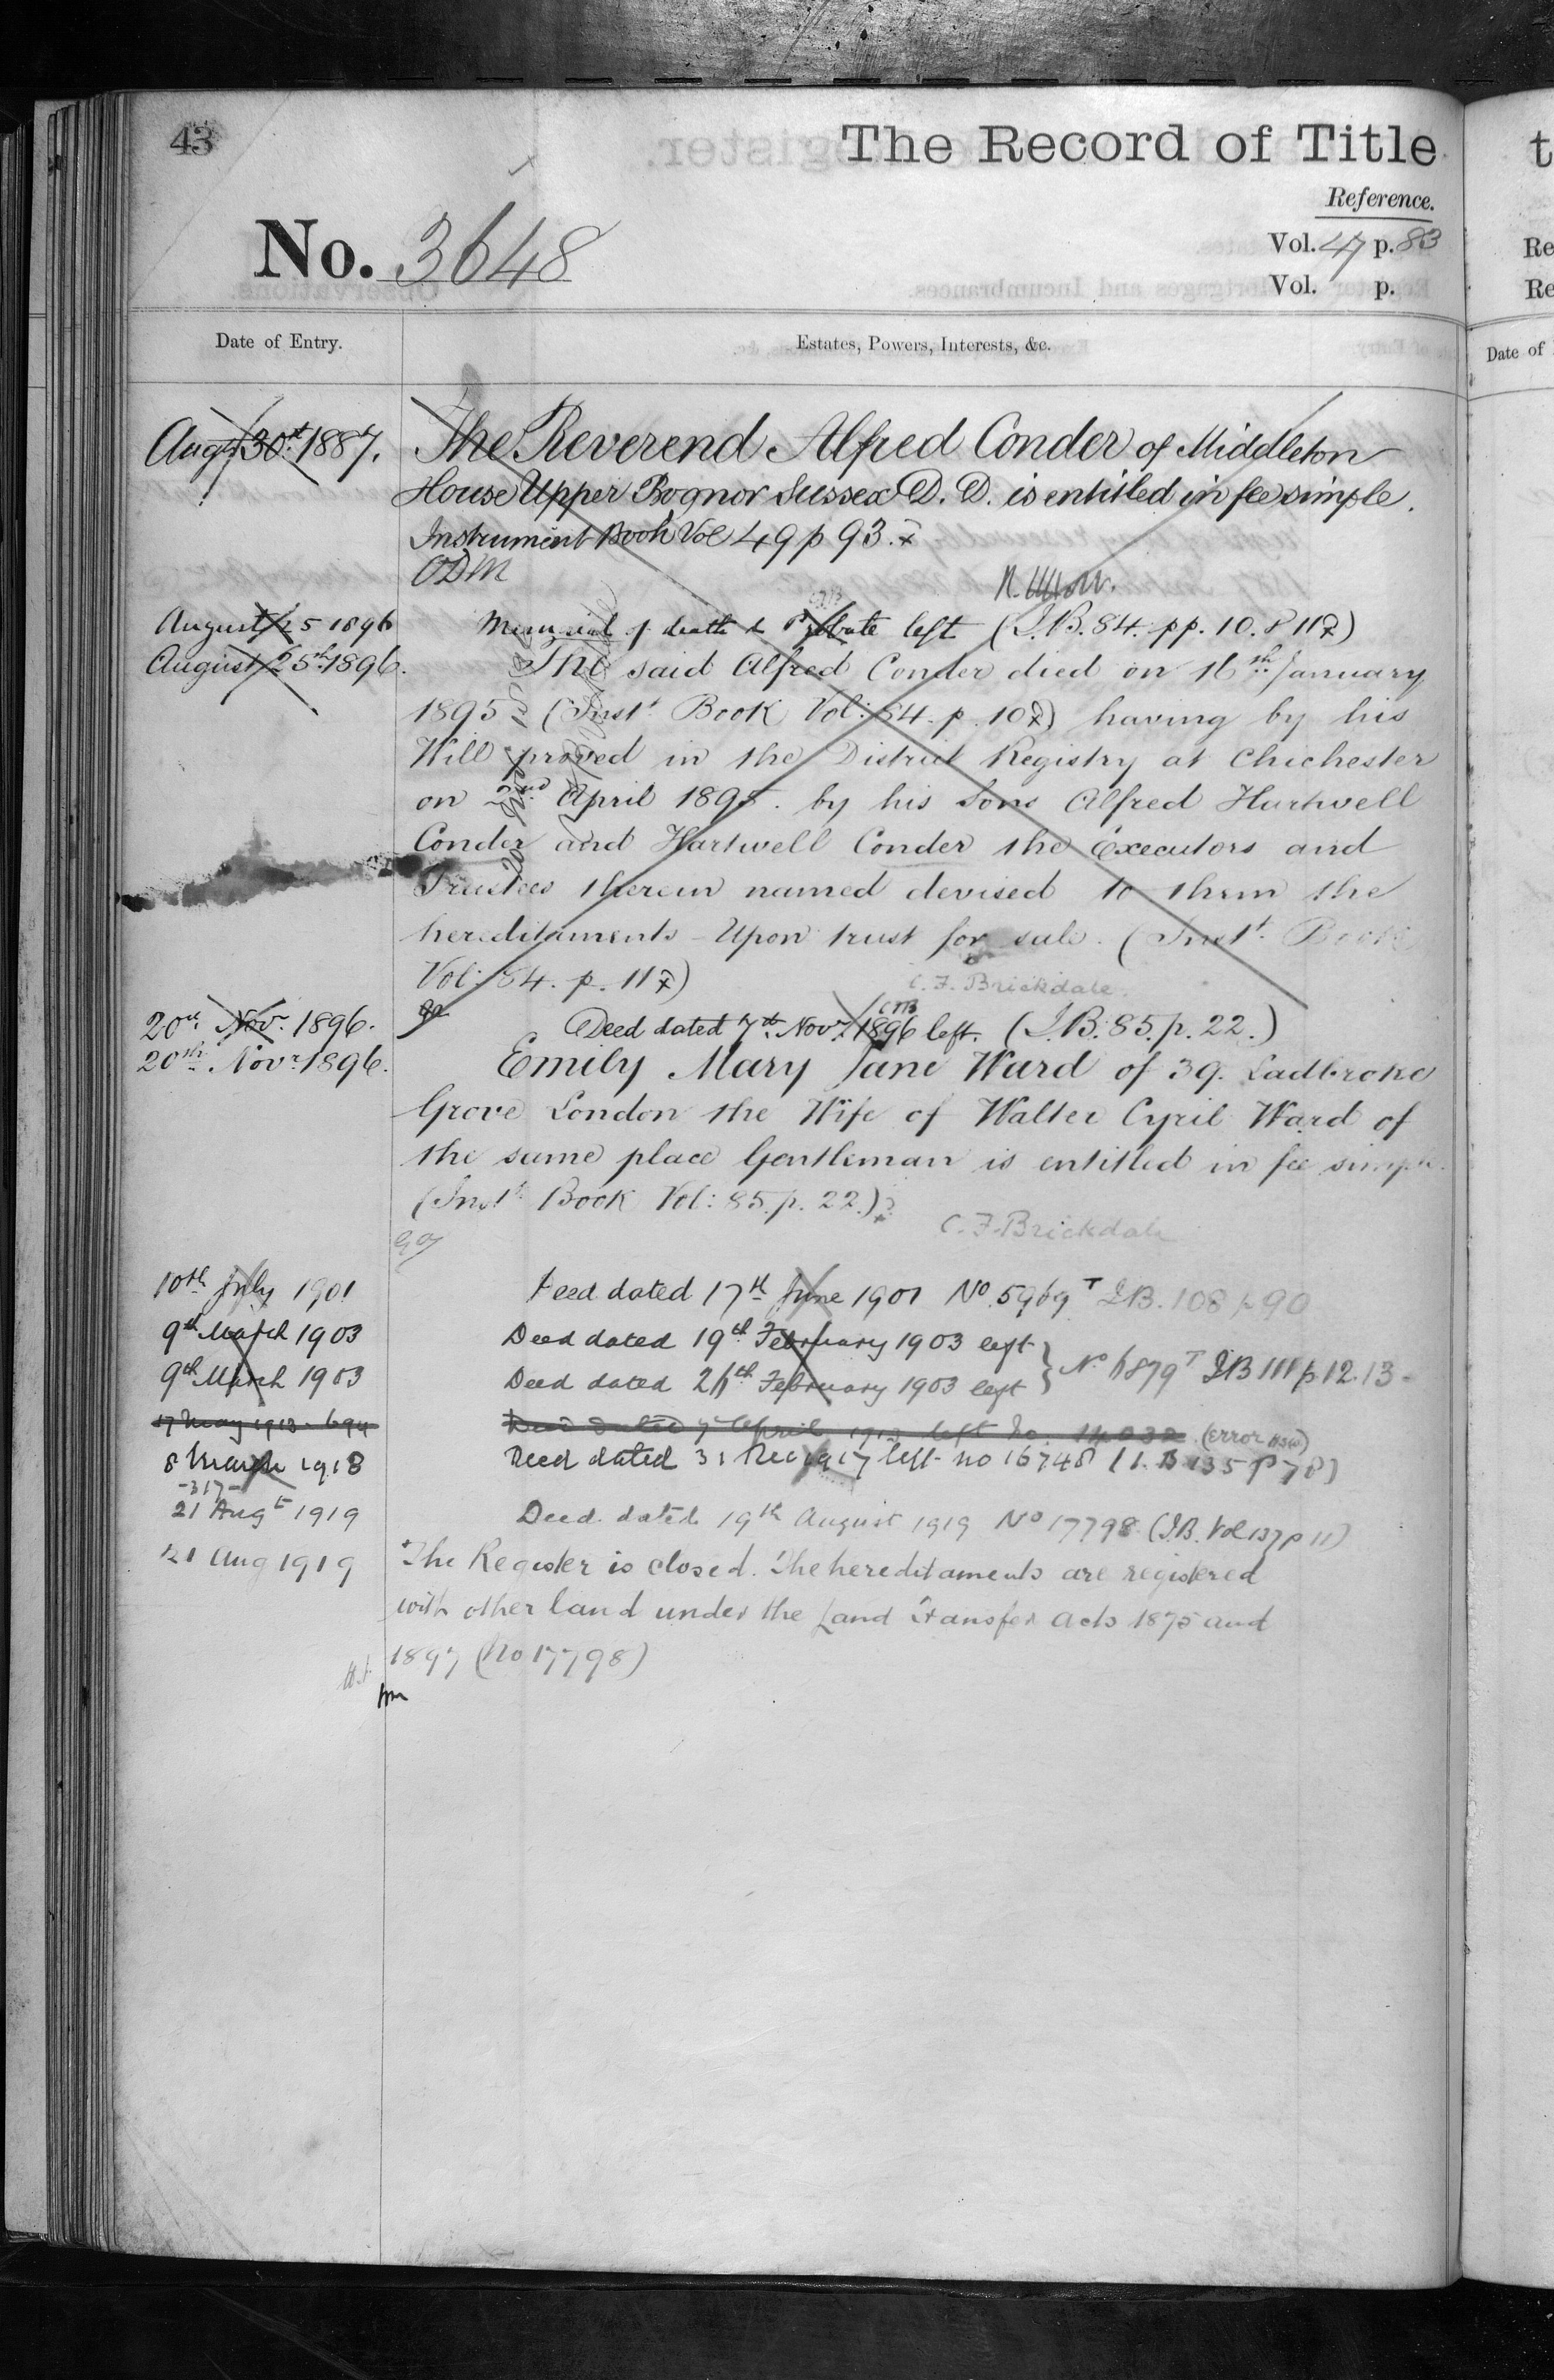 43
The Record of Title
Reference.
No. 3648
Vol. 47 p. 83
Vol. p.
Date of Entry.
Estates, Powers, Interests, &c.
Augt 30th 1887. The Reverend Alfred Conder of Middleton
House Upper Bognor Sussex D. D. is entitled in fee simple.
Instrument Book Vol 49 p 93.
ODM
August 25 1896 Memorial of death & Probate left (I.B. 84. pp. 10. & 11)
August 25th 1896. The said Alfred Conder died on 16th January
1895 (Inst. Book Vol: 84. p. 10) having by his
Will proved in the District Registry at Chichester
on 2nd April 1895. by his Sons Alfred Hartwell
Conder and Hartwell Conder the Executors and
Trustees therein named devised to them the
hereditaments Upon trust for sale. (Inst. Book
Vol: 84. p. 11)
C. F. Brickdale
20th Nov. 1896. Deed dated 7th Novr. 1896 left. (I.B. 85. p. 22.)
20th Novr. 1896. Emily Mary Jane Ward of 39. Ladbroke
Grove London the Wife of Walter Cyril Ward of
the same place Gentleman is entitled in fee simple.
(Inst. Book Vol: 85. p. 22.)
C. F. Brickdale
10th July 1901 Deed dated 17th June 1901 No 5969 T I.B. 108 p 90
9th March 1903 Deed dated 19th February 1903 left
9th March 1903 Deed dated 26th February 1903 left } No 6879 T IB 111 p. 12. 13
17 May 1913 - 694 Deed dated 9 April 1913 left No. 14032 (error HSW)
8 March 1918 Deed dated 31 Dec 1917 left no 16748 (I. B 135 p 78)
-317-
21 Augt 1919 Deed dated 19th August 1919 No 17798 (I.B. Vol 137 p 11)
21 Aug 1919 The Register is closed. The hereditaments are registered
with other land under the Land Transfer Acts 1875 and
1897 (No 17798)
Date of